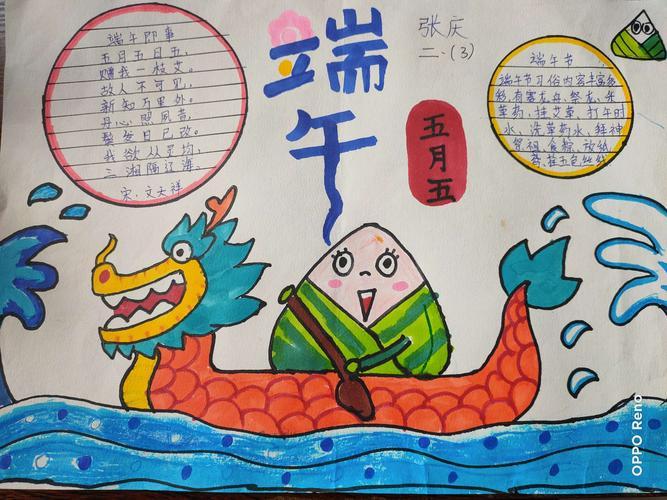 端午即事
五月五日五，
赠我一枝艾。
故人不可见，
新知万里外。
丹心照夙昔，
鬓发日已改。
我欲从灵均，
三湘隔辽海。
宋·文天祥
端午
张庆
二·(3)
五月五
端午节
端午节习俗内容丰富多
彩,有赛龙舟、祭龙、采
草药、挂艾草、打午时
水、洗草药水、拜神
祭祖、食粽、放纸
鸢、拴五色丝线
OPPO Reno